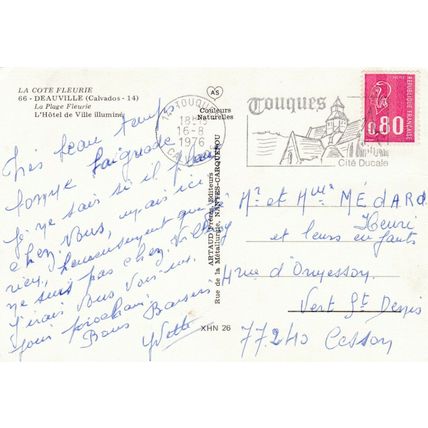 LA COTE FLEURIE
66 - DEAUVILLE (Calvados - 14)
La Plage Fleurie
L'Hôtel de Ville illuminé
Très beau temps
bonne baignade
Je ne sais si il pleut
chez Vous, mais ici
rien, heureusement que je
ne suis pas chez
J'irais Vous Voir un
jour prochain.
Bons Baisers
Yvette
AS
Couleurs
Naturelles
ARTAUD Frères, Editeurs
Rue de la Métallurgie, NANTES-CARQUEFOU
XHN 26
14 TOUQUES
18H
16-8
1976
CALVADOS
Touques
Cité Ducale
REPUBLIQUE FRANÇAISE
0,80
Mr et Mme MÉDARD
Henri
et leurs enfants
4 rue d'Ormesson
Vert St Denis
77240 Cesson